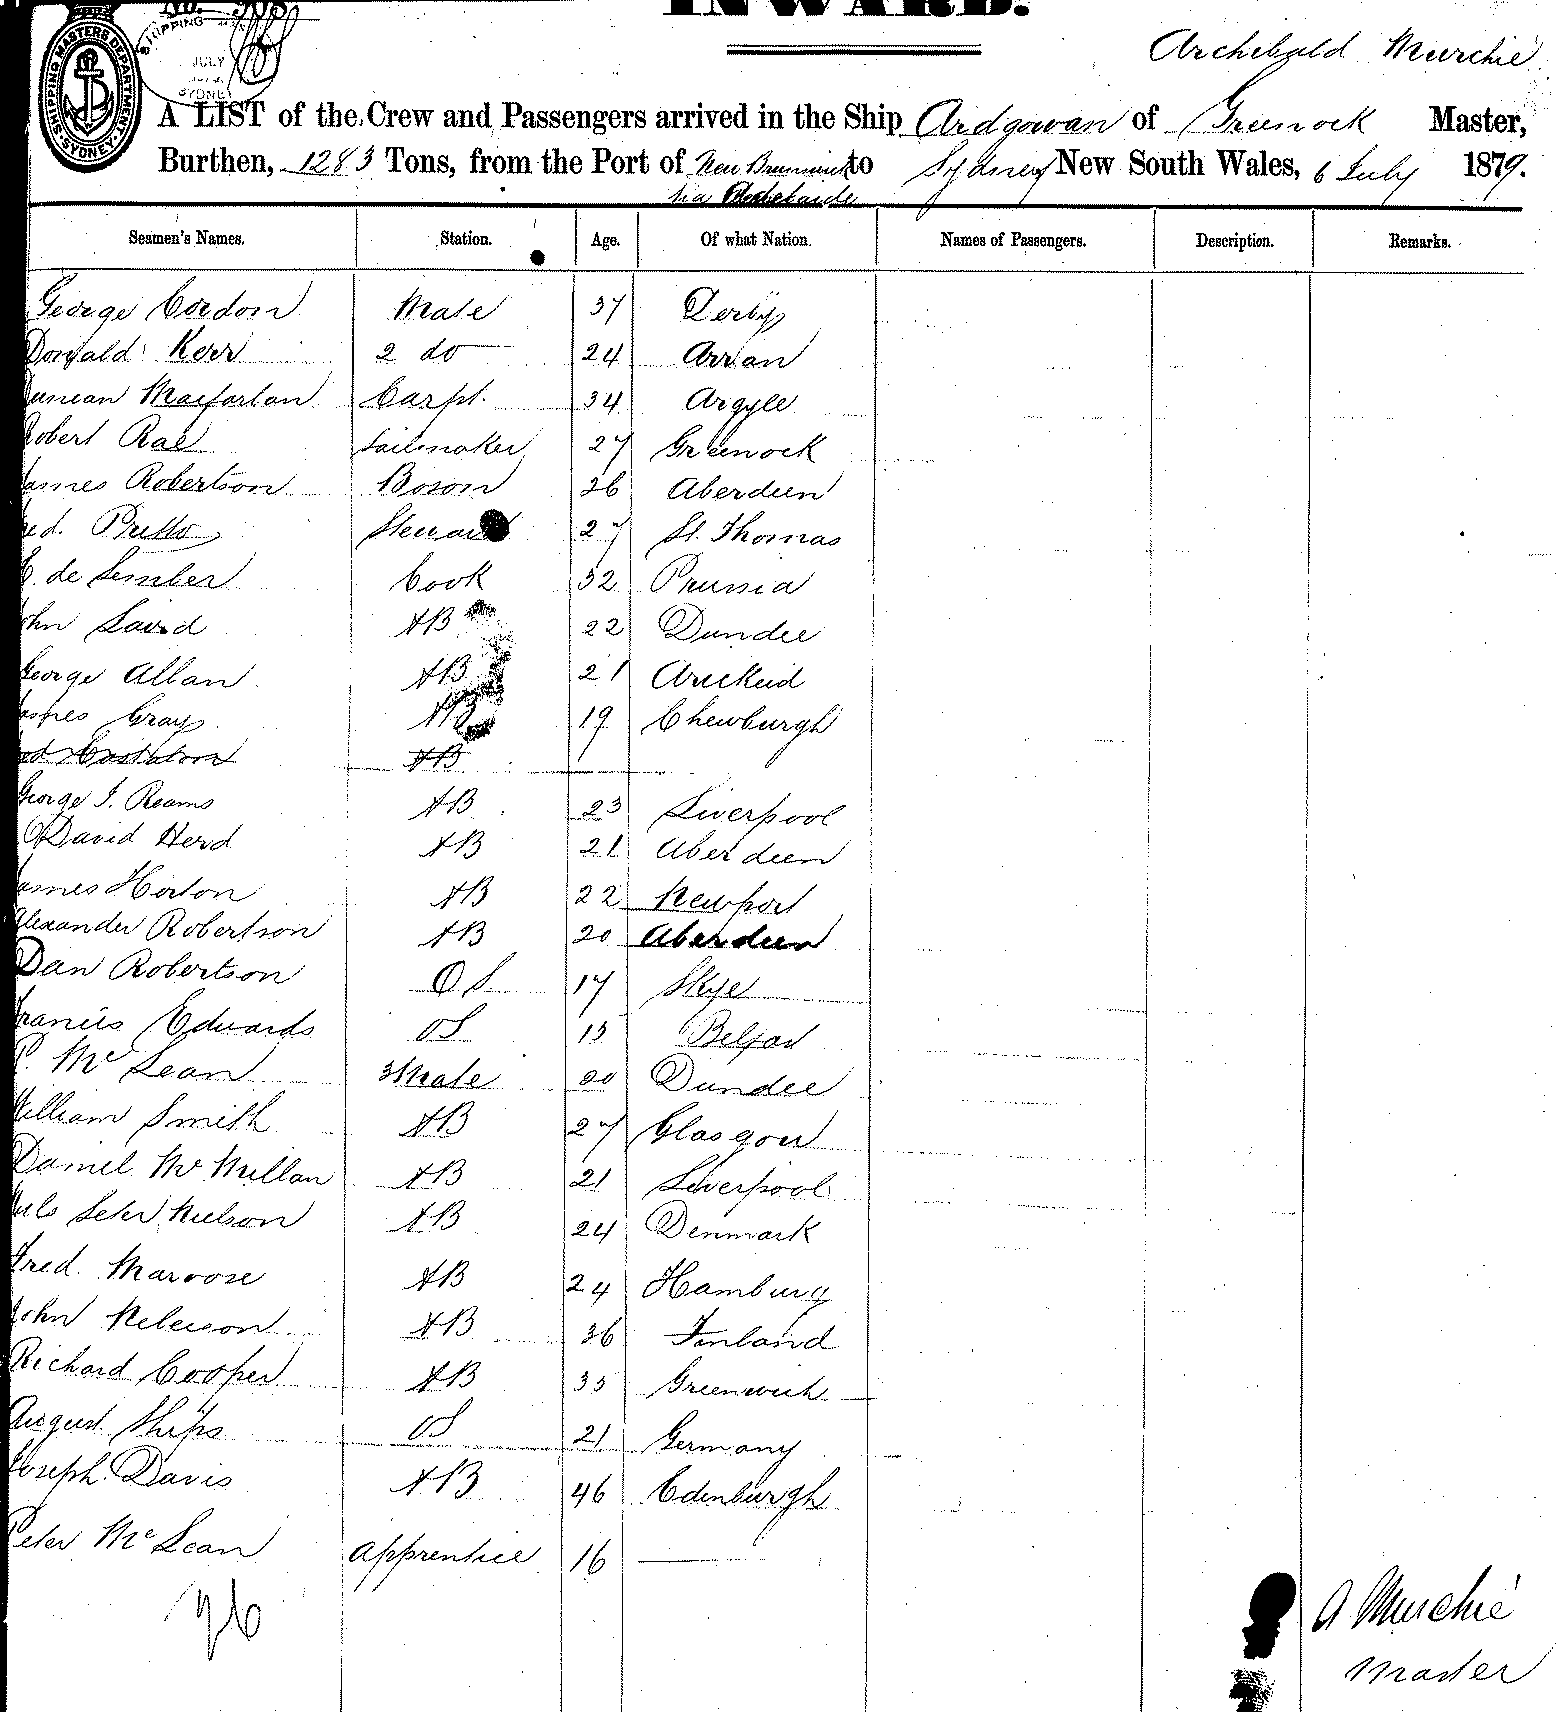 INWARD.
SHIPPING MASTERS DEPARTMENT SYDNEY
SHIPPING
JULY
SYDNEY
Archebald Murchie
A LIST of the Crew and Passengers arrived in the Ship Ardgowan of Greenock Master,
Burthen, 1283 Tons, from the Port of New Brunswick to Sydney New South Wales, 6 July 1879.
via
Seamen's Names. Station. Age. Of what Nation. Names of Passengers. Description. Remarks.
George Cordon Mate 37 Derby
Donald Kerr 2 do 24 Arran
Duncan Macfarlan Carpt. 34 Argyle
Robert Rae Sailmaker 27 Greenock
James Robertson Boson 26 Aberdeen
Steward 27 St. Thomas
de Cook 32 Prussia
John Laird AB 22 Dundee
George Allan AB 21
James Gray AB 19
AB
George J. Reams AB 23 Liverpool
David Herd AB 21 Aberdeen
James Horton AB 22 Newport
Alexander Robertson AB 20 Aberdeen
Dan Robertson OS 17 Skye
Francis Edwards OS
P. McLean 3 Mate 20 Dundee
William Smith AB 27 Glasgow
Daniel McMillan AB 21 Liverpool
Nils Peter Nielson AB 24 Denmark
Fred. Maroose AB 24 Hamburg
John AB 36 Finland
Richard Cooper AB 35 Greenwich
August Ships OS 21 Germany
Joseph Davis AB 46 Edinburgh
Peter McLean apprentice 16
26
A Murchie
Master